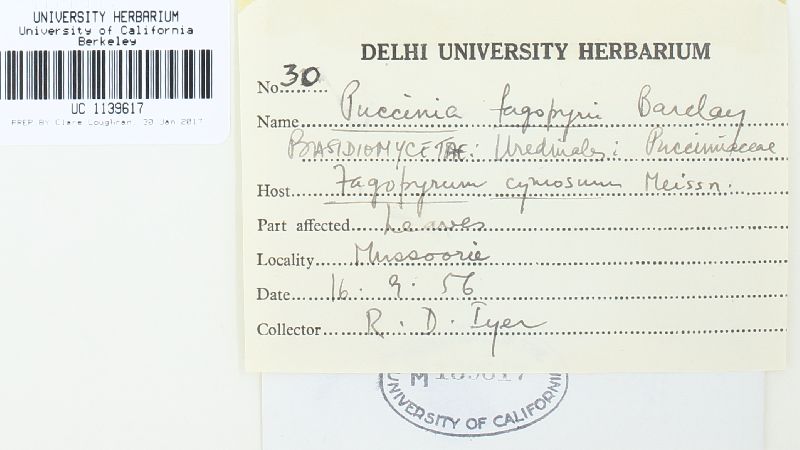 UNIVERSITY HERBARIUM
University of California
Berkeley
UC 1139617
PREP BY Clare Loughran, 30 Jan 2017
DELHI UNIVERSITY HERBARIUM
No. 30
Name Puccinia fagopyri Barclay
BASIDIOMYCETAE: Uredinales: Pucciniaceae
Host Fagopyrum cymosum Meissn.
Part affected Leaves
Locality Mussoorie
Date 16. 9. 56
Collector R. D. Iyer
M
UNIVERSITY OF CALIFORNIA